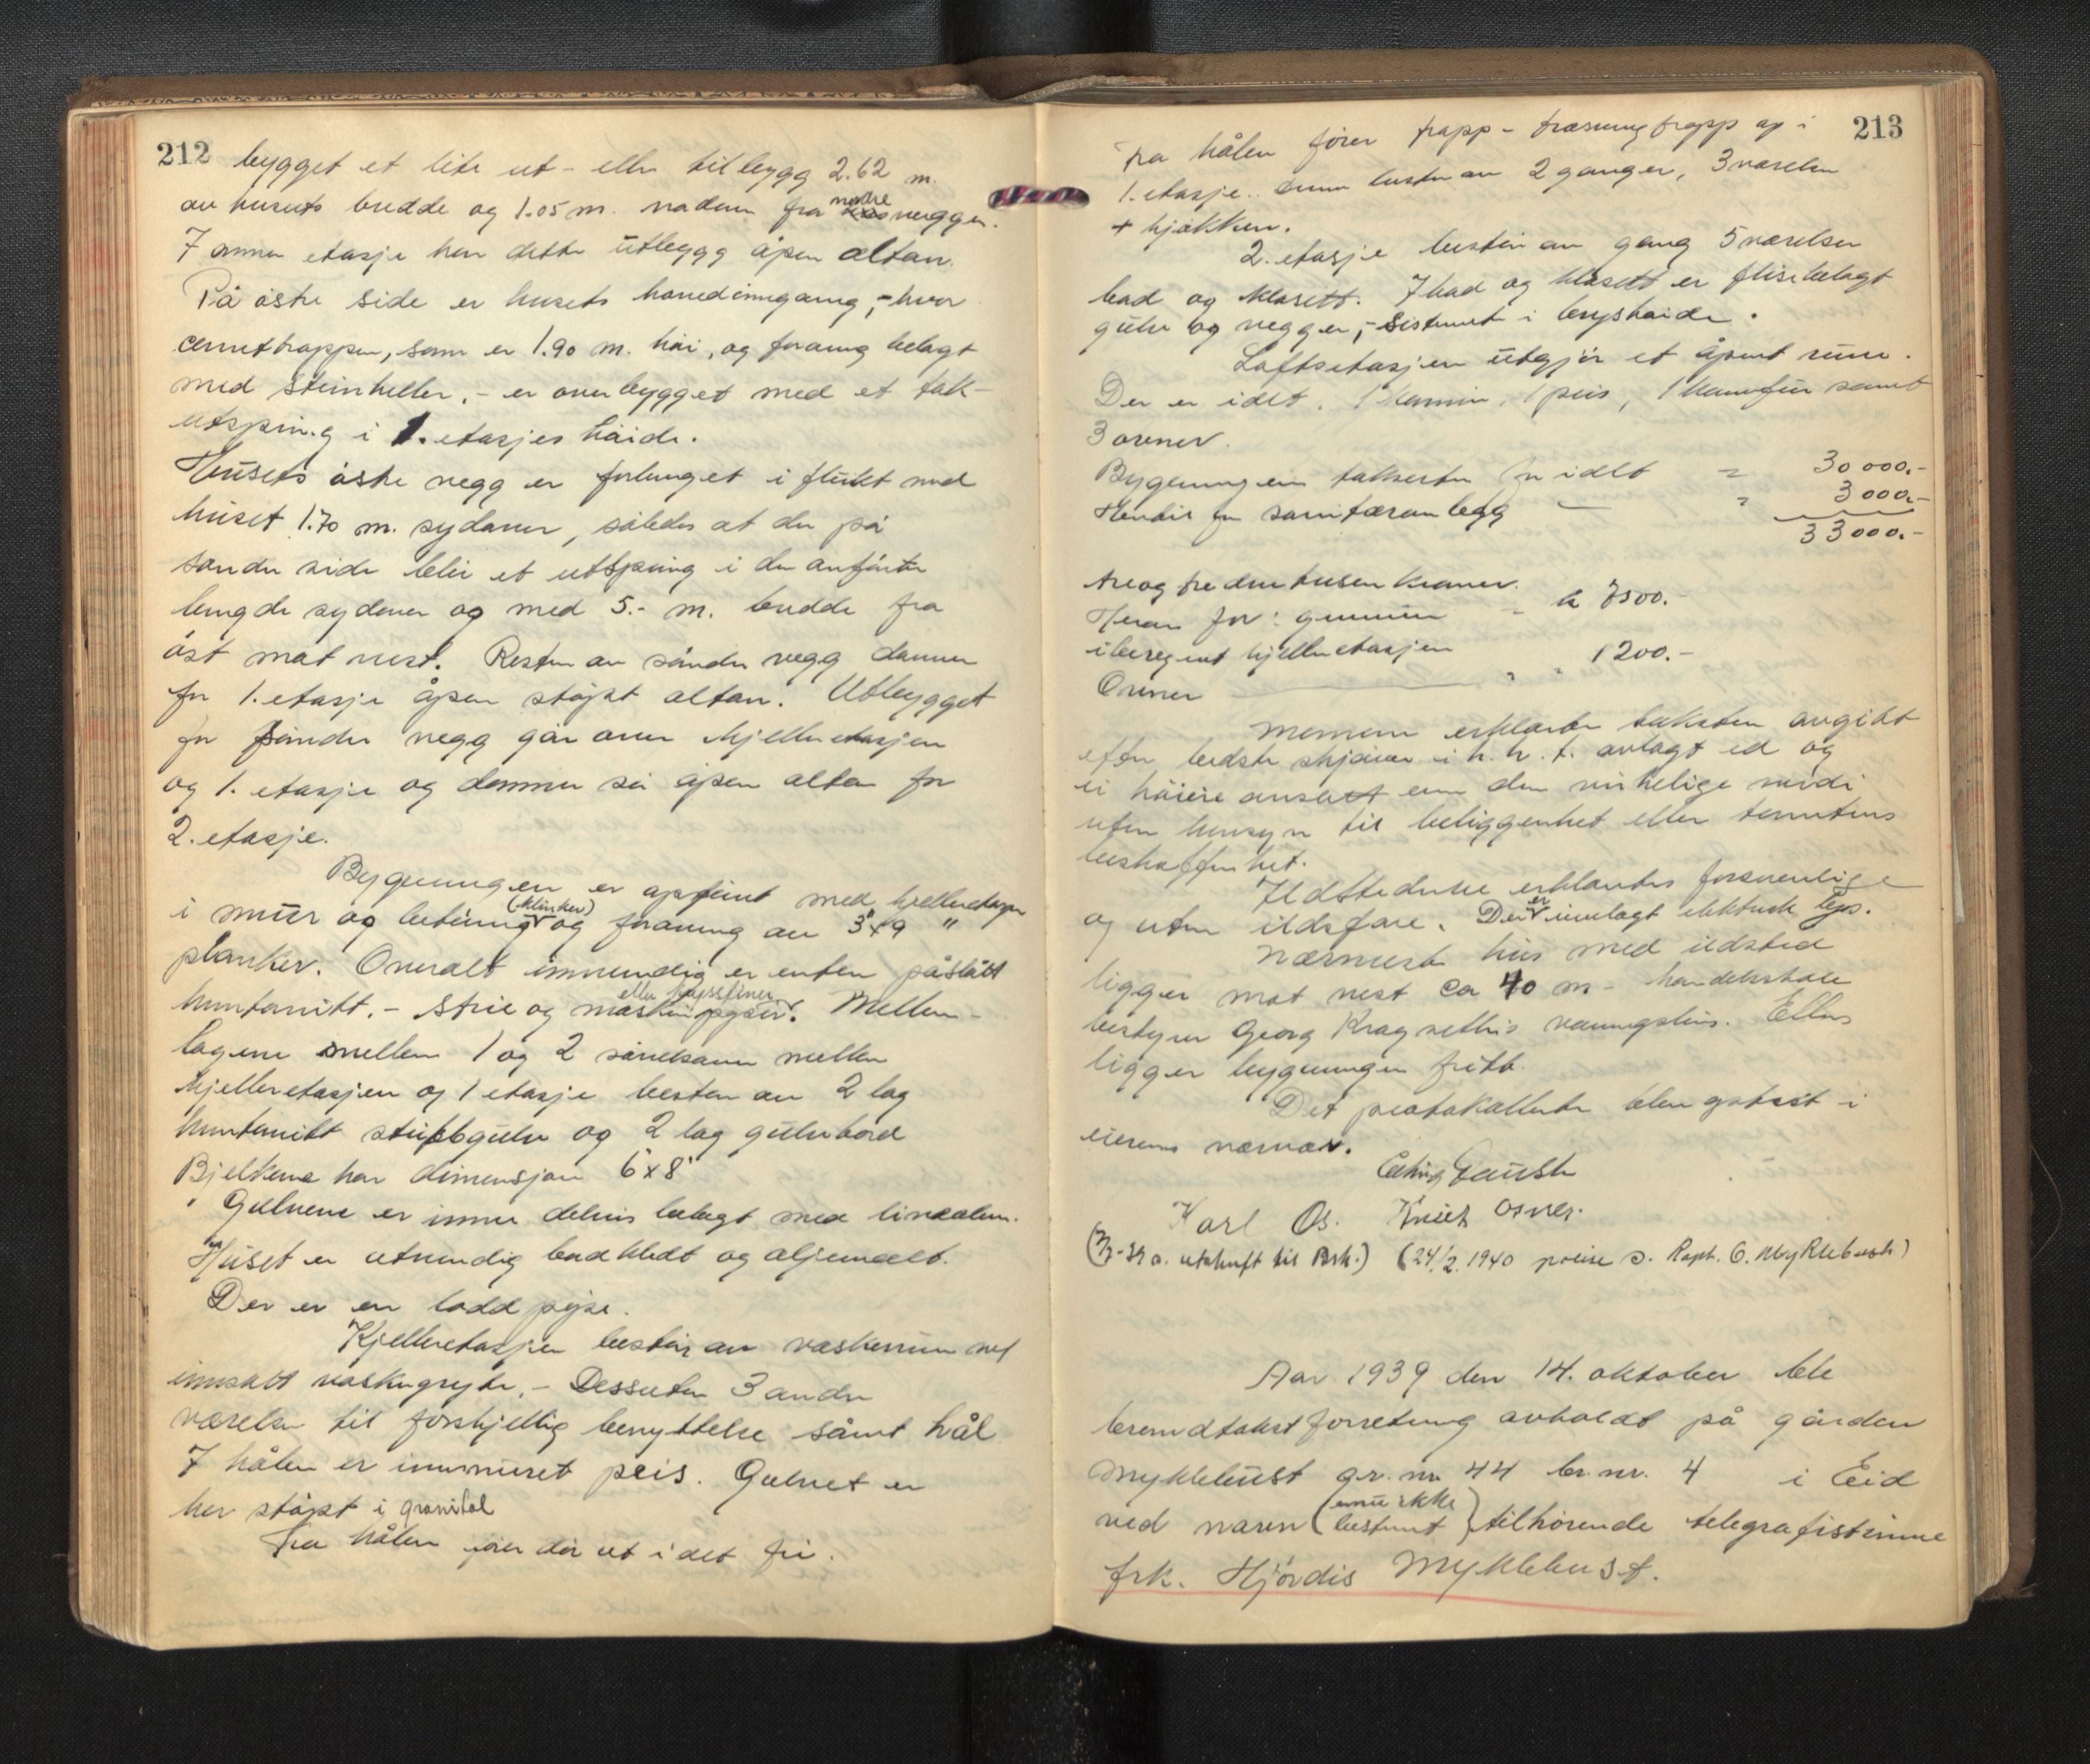 212
bygget et lite ut- eller tilbygg 2.62 m.
av husets bredde og 1.05 m. nadenn fra nordre veggen.
I annen etasje har dette utbygg åpen altan.
På østre side er husets hovedinngang, - hvor
cementtrappen, som er 1.90 m. høi, og forøvrig belagt
med steinheller, - er overbygget med et tak-
utspring i 1. etasjes høide.
Husets østre vegg er forlenget i flukt med
huset 1.70 m. sydover, således at der på
søndre side blir et utspring i den anførte
lengde sydover og med 5.- m. bredde fra
øst mot vest. Resten av søndre vegg danner
for 1. etasje åpen støpt altan. Utbygget
for søndre vegg går over kjelleretasjen
og 1. etasje og danner så åpen altan for
2. etasje.
Bygningen er opført med kjelleretasje
i mur og betong (klinker) og forøvrig av 3" x 9"
planker. Overalt innvendig er enten påslått
huntonitt, - strie og maskinpapir eller kryssfiner. Mellem-
lagene mellem 1 og 2 såvelsom mellem
kjelleretasjen og 1 etasje består av 2 lag
huntonitt stubbgulv og 2 lag gulvbord
Bjelkene har dimensjon 6" x 8"
Gulvene er innv. delvis belagt med linoleum.
Huset er utvendig bordkledt og oljemalt.
Der er en ladd pipe.
Kjelleretasjen består av vaskerum med
innsatt vaskegryte, - Dessuten 3 andre
værelser til forskjellig benyttelse samt hål
I hålen er innmuret peis. Gulvet er
her støpt i granitol
Fra hålen fører dør ut i det fri.
213
Fra hålen fører trapp - træsving trapp op i
1. etasje. Denne består av 2 ganger, 3 værelser
+ kjøkken.
2. etasje består av gang 5 værelser
bad og klosett. I bad og klosett er flisebelagt
gulv og vegger, - sistnevnte i brysthøide.
Loftsetasjen utgjør et åpent rum.
Der er idet. 1 kamin, 1 peis, 1 komfur samt
3 ovner.
Bygningen taksertes for idet = 30 000.-
Herav for sanitæranlegg - = 3 000.-
33 000.-
tre og tredve tusen kroner.
Herav for: grunnmur
iberegnet kjelleretasjen " kr 7500.-
Ovner " " 1200.-
Mennene erklærte taksten avgitt
efter bedste skjønn i h.h.t. avlagt ed og
ei høiere ansatt enn den virkelige verdi
uten hensyn til beliggenhet eller tomtens
beskaffenhet.
Ildstederne erklærtes forsvarlige
og uten ildsfare. Der er innlagt elektrisk lys.
Nærmeste hus med ildsted
ligger mot vest ca 40 m - handelsskole
bestyrer Georg Kragseths våningshus. Ellers
ligger bygningen fritt.
Det protokollerte blev gotatt i
eierens nærvær.
Karl Os. Knut Osnes.
utskrift til Brk.) (24/2. 1940 prøve s. Kapt. O. Myklebust)
Aar 1939 den 14. oktober ble
branndtakstforretning avholdt på gården
Myklebust gr. nr 44 br. nr. 4 i Eid
ved navn (ennu ikke bestemt) tilhørende telegrafistinne
frk. Hjørdis Myklebust.